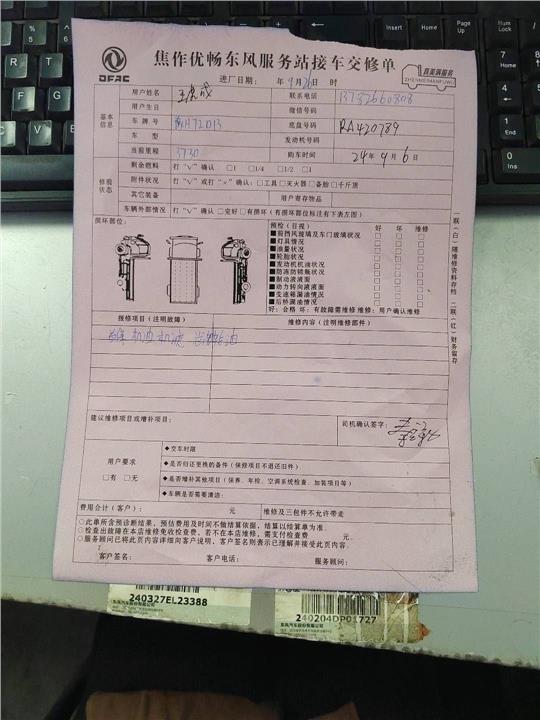 DFAC
焦作优畅东风服务站接车交修单
真美满服务
ZHENMEIMANFUWU
进厂日期: 年 9月26日 时
基本信息
用户姓名 联系电话 13782660808
用户生日 微信号码
车牌号 底盘号码 RA420789
车型 发动机号码
当前里程 3730 购车时间 24年9月6日
修前状态
剩余燃料 打"√"确认 □1 □1/4 □1/2 □1
附件状况 打"√"或打"×"确认:□工具□灭火器□备胎□千斤顶
其它装备 用户寄存物品
车辆外部情况 打"√"确认□完好□有损坏(有损坏部位标注有下表左图)
损坏部位: 预检(目视) 好 坏 维修
■前挡风玻璃及车门玻璃状况 □ □ □
■灯具情况 □ □ □
■油量状况 □ □ □
■轮胎状况 □ □ □
■发动机机油状况 □ □ □
■防冻防锈液状况 □ □ □
■制动液液面 □ □ □
■助力转向液液面 □ □ □
■变速箱漏油情况 □ □ □
■后桥漏油情况 □ □ □
好:合格 坏:有故障需维修 维修:用户确认维修
报修项目(注明故障) 维修内容(注明维修部件)
机油 机滤
建议维修项目或增补项目: 司机确认签字:
用户要求
□有 □无
◆交车时限
◆是否归还更换的备件(保修项目不退还旧件)
◆是否增补其他项目(保养、年检、空调系统检查、加装项目等)
◆车辆是否需要清洁:
费用合计(客户): 元 维修及三包件不允许带走
○此单所含预诊断结果,预估费用及时间不做结算依据,结算以结算单为准.
○检查出故障在本店维修免收检查费,若不在本店维修,需支付检查费 元.
○服务顾问已将此页内容详细向客户说明,客户签名则表示已理解并接受此页内容.
客户签名: 客户电话: 服务顾问:
一联(白)随维修资料存档 二联(红)财务留存
240327EL23388
东风汽车股份有限公司
240204DP01727
东风汽车股份有限公司
Ctrl
Insert
Home
Page Up
Num Lock
Delete
End
7
Home
4
1
End
0
Ins